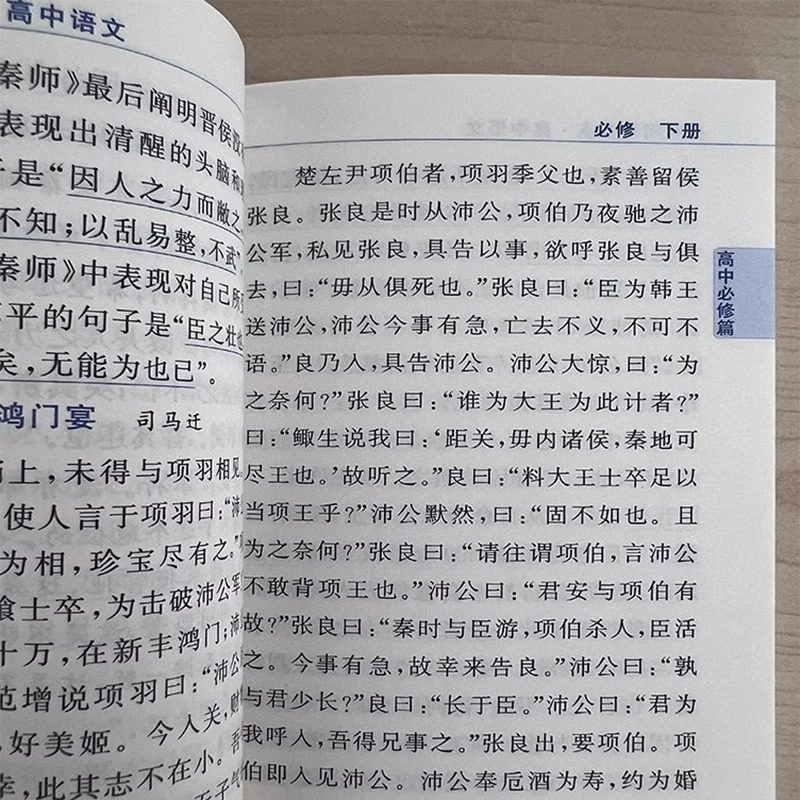 高中语文
秦师》最后阐明晋侯没
表现出清醒的头脑和
是“因人之力而敝之
不知；以乱易整，不武”
秦师》中表现对自己所
平的句子是“臣之壮也
矣，无能为也已”。
鸿门宴 司马迁
上，未得与项羽相见
使人言于项羽曰：“沛
为相，珍宝尽有之。”
士卒，为击破沛公军
十万，在新丰鸿门；沛
范增说项羽曰：“沛公
好美姬。今入关，财
幸，此其志不在小。吾
必修 下册
楚左尹项伯者，项羽季父也，素善留侯
张良。张良是时从沛公，项伯乃夜驰之沛
公军，私见张良，具告以事，欲呼张良与俱
去，曰：“毋从俱死也。”张良曰：“臣为韩王
送沛公，沛公今事有急，亡去不义，不可不
语。”良乃入，具告沛公。沛公大惊，曰：“为
之奈何？”张良曰：“谁为大王为此计者？”
曰：“鲰生说我曰：‘距关，毋内诸侯，秦地可
尽王也。’故听之。”良曰：“料大王士卒足以
当项王乎？”沛公默然，曰：“固不如也。且
为之奈何？”张良曰：“请往谓项伯，言沛公
不敢背项王也。”沛公曰：“君安与项伯有
故？”张良曰：“秦时与臣游，项伯杀人，臣活
之。今事有急，故幸来告良。”沛公曰：“孰
与君少长？”良曰：“长于臣。”沛公曰：“君为
我呼入，吾得兄事之。”张良出，要项伯。项
伯即入见沛公。沛公奉卮酒为寿，约为婚
高中必修篇